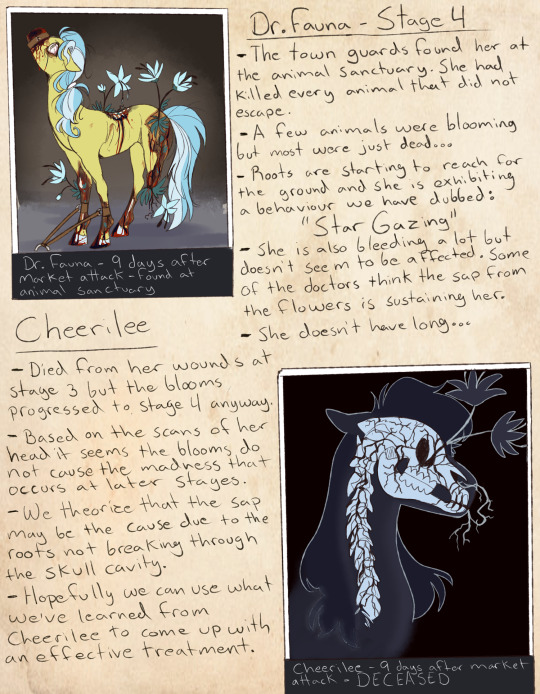 Dr. Fauna - Stage 4
- The town guards found her at
the animal sanctuary. She had
killed every animal that did not
escape.
- A few animals were blooming
but most were just dead...
- Roots are starting to reach for
the ground and she is exhibiting
a behaviour we have dubbed:
"Star Gazing"
- She is also bleeding a lot but
doesn't seem to be affected. Some
of the doctors think the sap from
the flowers is sustaining her.
- She doesn't have long...
Dr. Fauna - 9 days after
market attack - found at
animal sanctuary
Cheerilee
- Died from her wounds at
stage 3 but the blooms
progressed to stage 4 anyway.
- Based on the scans of her
head it seems the blooms do
not cause the madness that
occurs at later stages.
- We theorize that the sap
may be the cause due to the
roots not breaking through
the skull cavity.
- Hopefully we can use what
we've learned from
Cheerilee to come up with
an effective treatment.
Cheerilee - 9 days after market
attack - DECEASED